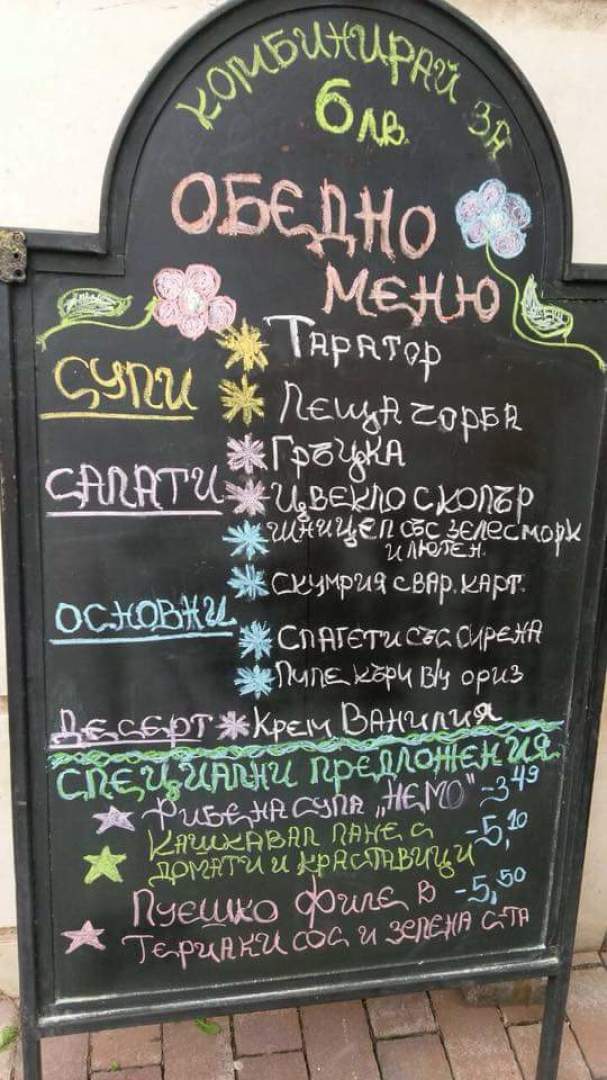 КОМБИНИРАЙ ЗА
6 лв.
ОБЕДНО
МЕНЮ
СУПИ
ТАРАТОР
ЛЕЩА ЧОРБА
САЛАТИ
ГРЪЦКА
ЦВЕКЛО С КОПЪР
ОСНОВНИ
ШНИЦЕЛ СЪС ЗЕЛЕ С МОРК
И ЛЮТЕН.
СКУМРИЯ С ВАР. КАРТ.
СПАГЕТИ СЪС СИРЕНА
ПИЛЕ КЪРИ В/У ОРИЗ
ДЕСЕРТ КРЕМ ВАНИЛИЯ
СПЕЦИАЛНИ ПРЕДЛОЖЕНИЯ
РИБЕНА СУПА „НЕМО" - 3 49
КАШКАВАЛ ПАНЕ С - 5, 10
ДОМАТИ И КРАСТАВИЦИ
ПУЕШКО ФИЛЕ В - 5, 50
ТЕРИАКИ СОС И ЗЕЛЕНА С-ТА